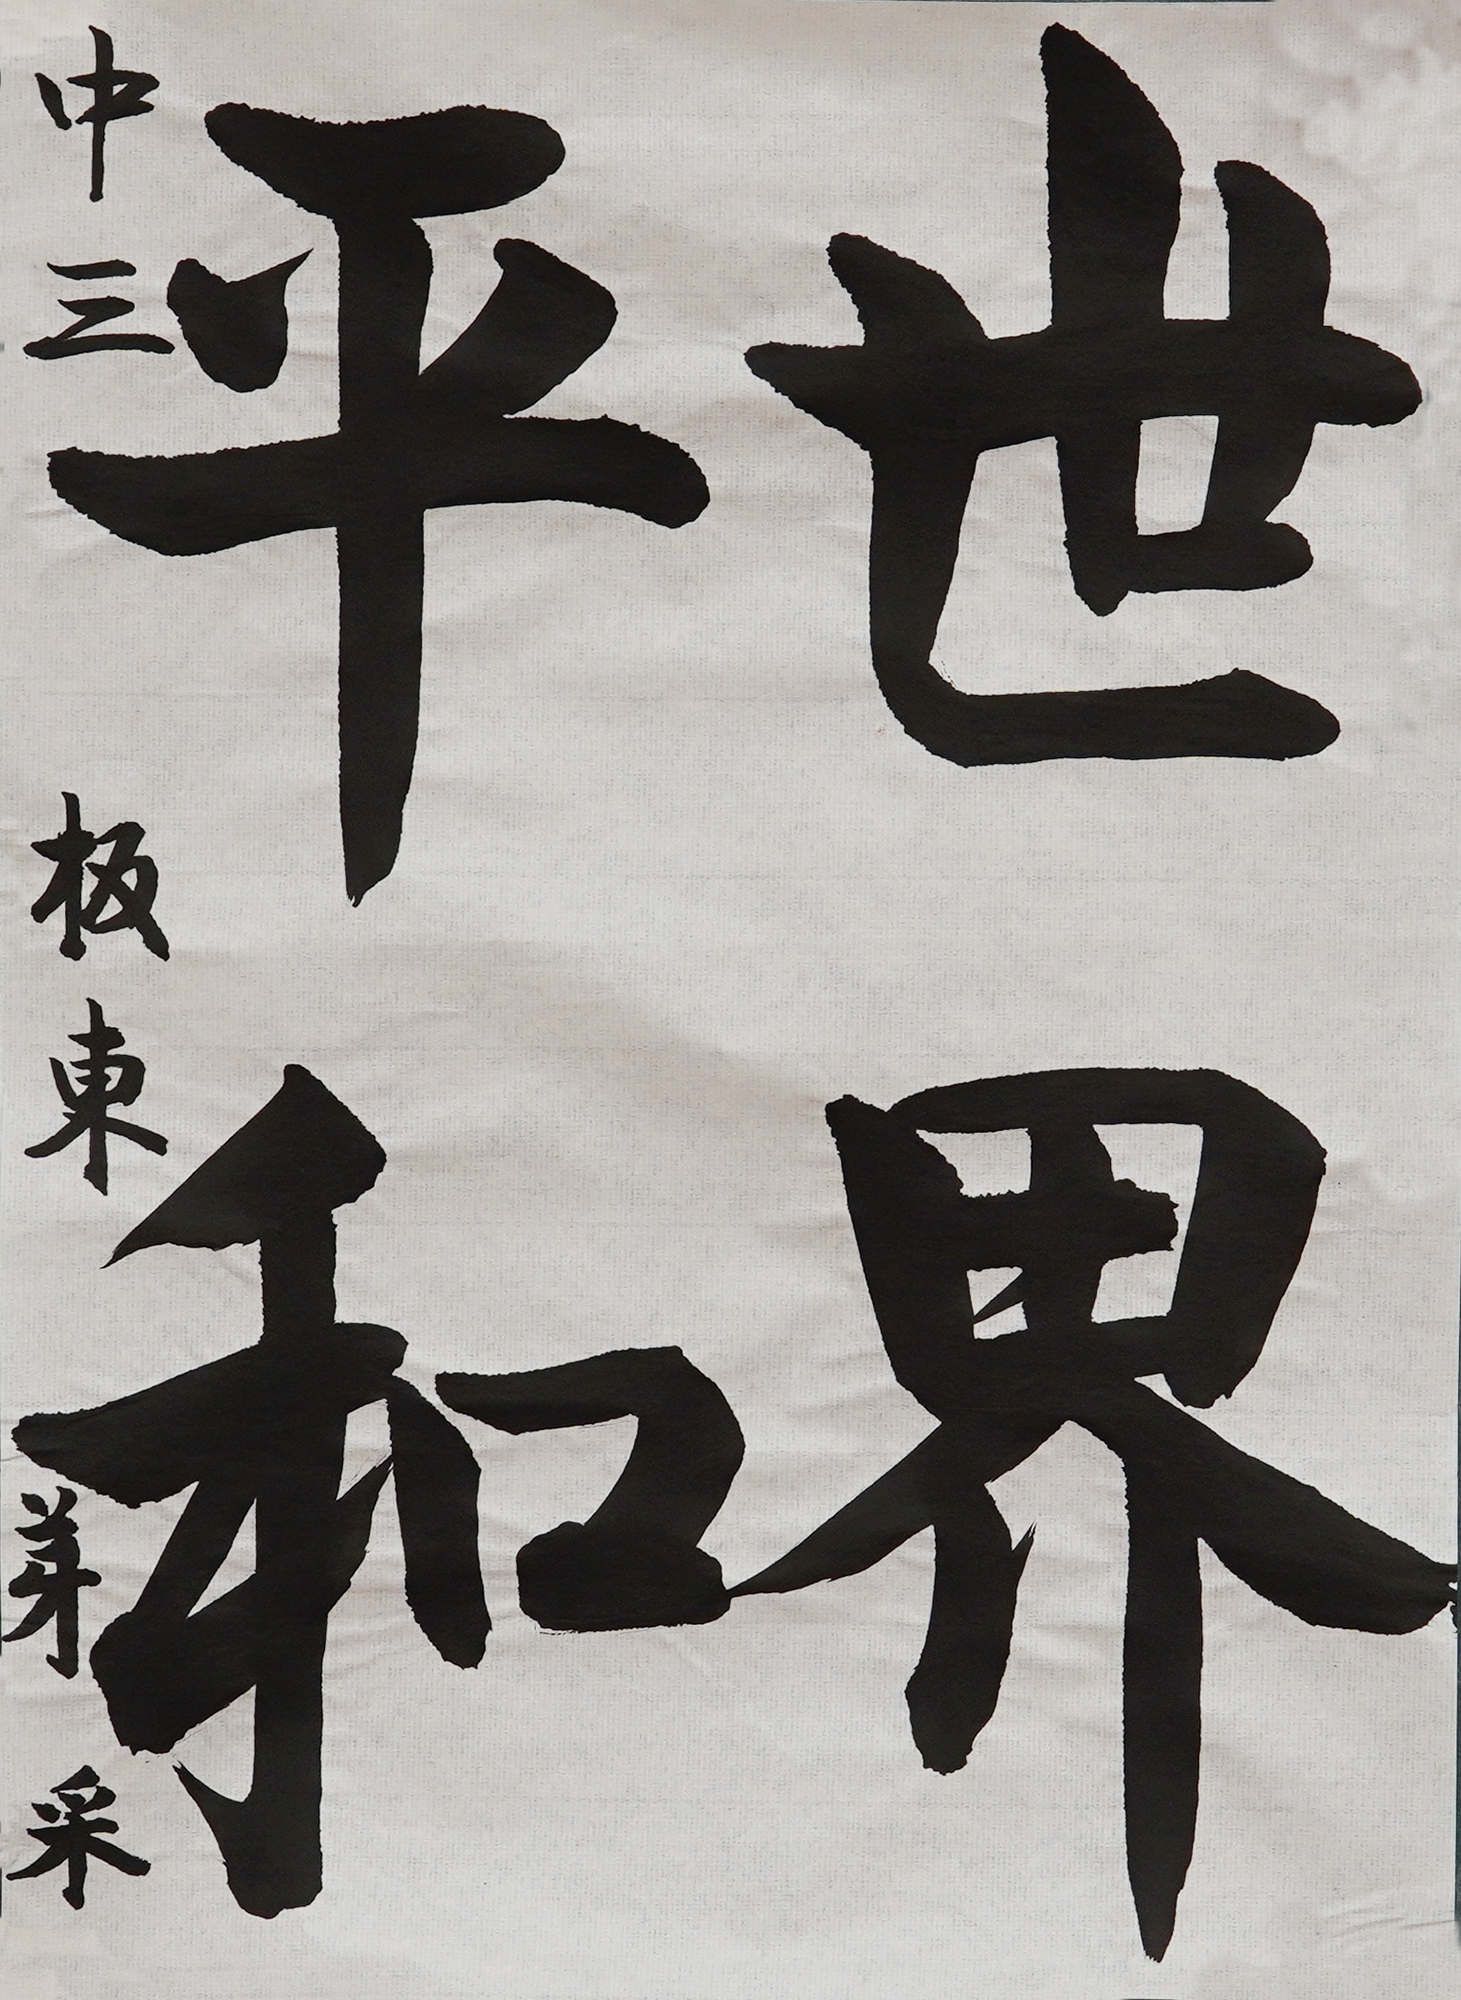 世界
平和
中三 板東 芽采